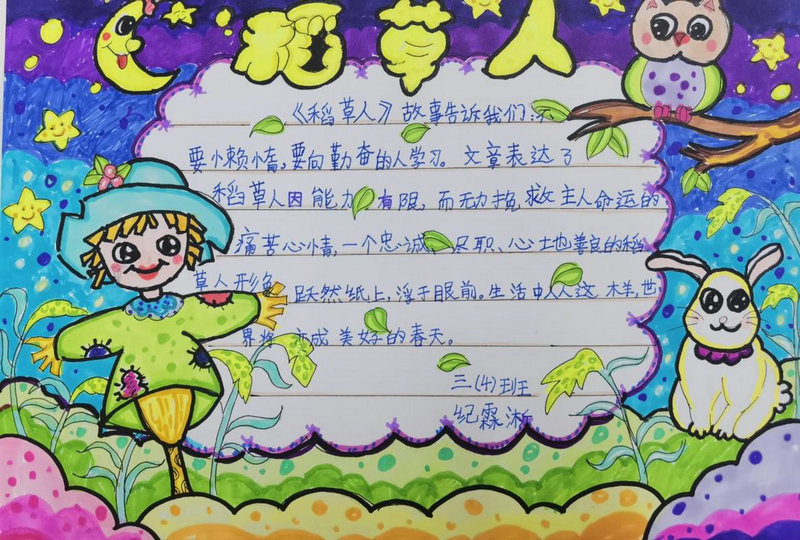 稻草人
《稻草人》故事告诉我们:不
要懒惰,要向勤奋的人学习。文章表达了
稻草人因能力有限,而无力挽救主人命运的
痛苦心情,一个忠诚、尽职、心土也善良的稻
草人形象跃然纸上,浮于眼前。生活中人人这样,世
界将变成美好的春天。
三(4)班
纪霖淅